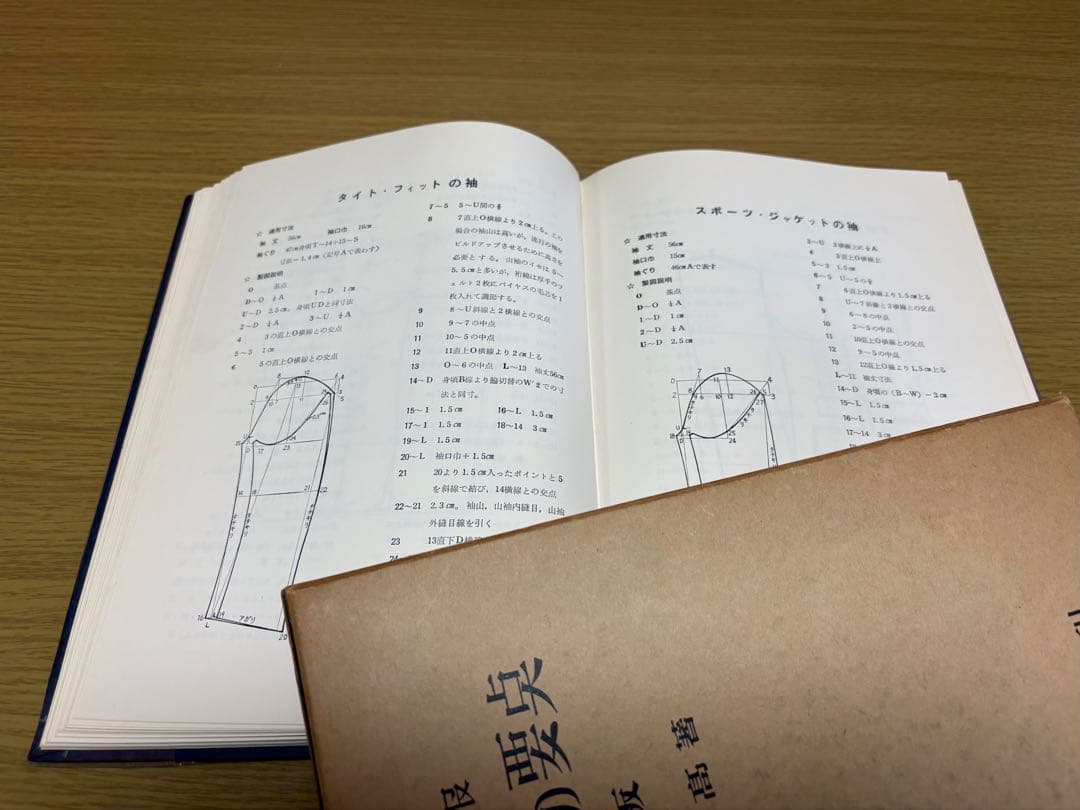 タイト・フィットの袖
☆ 適用寸法
袖丈 56cm 袖口巾 16cm
袖ぐり 47cm身頃T～14+15～S
☆ 製図説明
O 基点
D～O ⅓A 1～D 1cm
U～D 2.5cm, 身頃UDと同寸法
2～D ¼A 3～U ½A
4 3の直上O横線との交点
5～3 1cm
6 5の直上O横線との交点
7～5 5～U間の
8 7直上O横線より2cm上る。この
場合の袖山は高いが，流行の袖を
ビルドアップさせるために高さを
必要とする。山袖のイセは5～
5.5cmと多いが，裄綿は厚手のフ
ェルト2枚にバイヤスの毛芯を1
枚入れて調節する。
9 8～U斜線と2横線との交点
10 9～7の中点
11 10～5の中点
12 11直上O横線より2cm上る
13 O～6の中点 L～13 袖丈56cm
14～D 身頃B線より脇切替のW'までの寸
法と同寸。
15～1 1.5cm 16～L 1.5cm
17～1 1.5cm 18～14 3cm
19～L 1.5cm
20～L 袖口巾+1.5cm
21 20より1.5cm入ったポイントと5
を斜線で結び，14横線との交点
22～21 2.3cm。袖山，山袖内縫目，山袖
外縫目線を引く
23 13直下D横線
アガリ
スポーツ・ジャケットの袖
☆ 適用寸法
袖丈 56cm
袖口巾 15cm
袖ぐり 46cmAで表す
☆ 製図説明
O 基点
D～O ⅓A
1～D 1cm
2～D ¼A
U～D 2.5cm
3～U 2横線上に½A
4 3直上O横線上
5～3 1.5cm
6～5 U～5の
7 6直上O横線より1.5cm上る
8 U～7斜線と2横線との交点
9 6～8の中点
10 2～5の中点
11 10直上O横線との交点
12 9～5の中点
13 12直上O横線より1.5cm上る
L～11 袖丈寸法
14～D 身頃の(B～W)－3cm
15～L 1.5cm
16～L 1.5cm
17～14 3cm
要点
版
高著
服